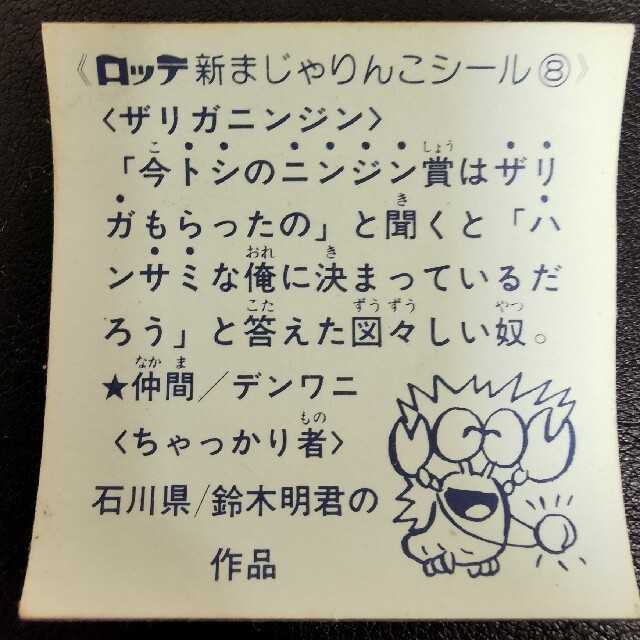 《ロッテ新まじゃりんこシール⑧》
〈ザリガニンジン〉
「今トシのニンジン賞はザリ
ガもらったの」と聞くと「ハ
ンサミな俺に決まっているだ
ろう」と答えた図々しい奴。
★仲間／デンワニ
〈ちゃっかり者〉
石川県/鈴木明君の
作品